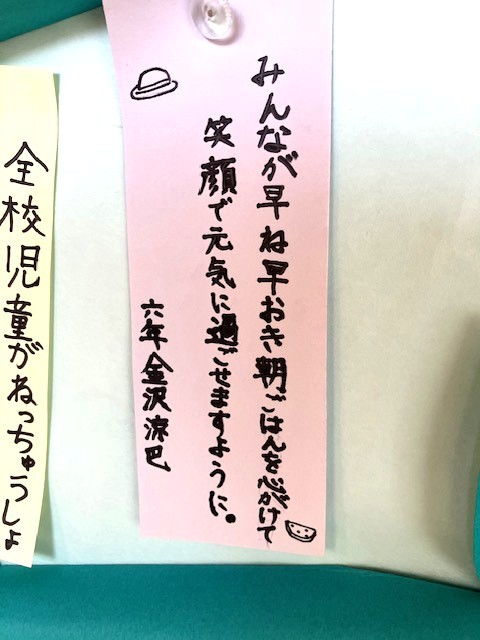 みんなが早ね早おき朝ごはんを心がけて
笑顔で元気に過ごせますように。
六年金沢涼巴
全校児童がねっちゅうしょ